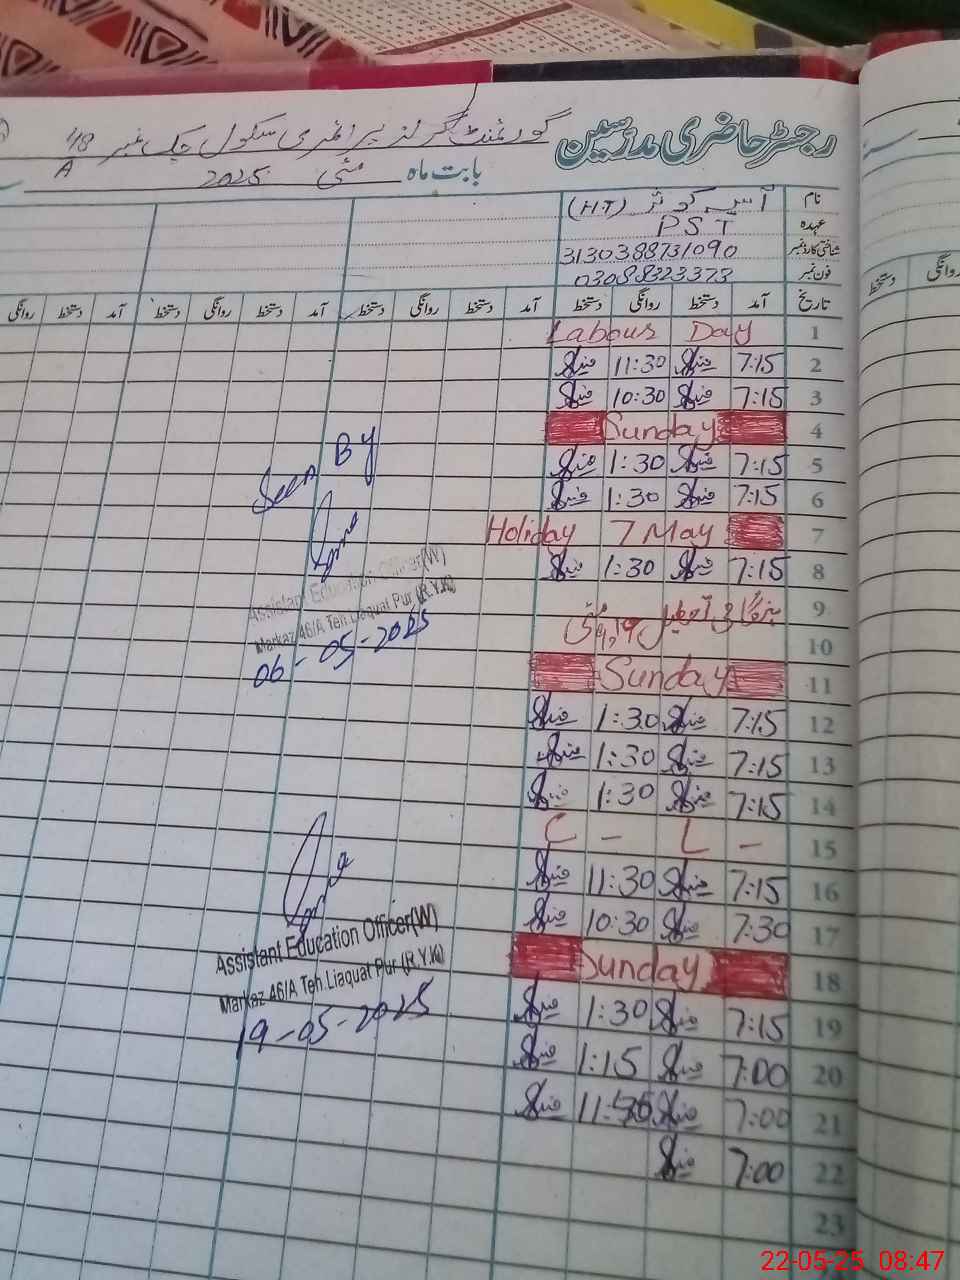 رجسٹر حاضری مدرسین گورنمنٹ گرلز پرائمری سکول چک نمبر 48/A
بابت ماہ مئی 2025
نام (HT) آسیہ کوثر
عہدہ PST
شناختی کارڈ نمبر 3130388731090
فون نمبر 03088323373
تاریخ آمد دستخط روانگی دستخط آمد دستخط روانگی دستخط آمد دستخط روانگی دستخط آمد دستخط روانگی
1 Labour Day
2 7:15 11:30
3 7:15 10:30
4 Sunday
5 7:15 1:30
6 7:15 1:30
Seen By
7 Holiday 7 May
8 7:15 1:30
Assistant Education Officer(W)
Markaz 46/A Teh.Liaquat Pur (R.Y.K)
06-05-2025
9
10
11 Sunday
12 7:15 1:30
13 7:15 1:30
14 7:15 1:30
15 C - L -
16 7:15 11:30
17 7:30 10:30
Assistant Education Officer(W)
Markaz 46/A Teh.Liaquat Pur (R.Y.K)
19-05-2025
18 Sunday
19 7:15 1:30
20 7:00 1:15
21 7:00
22 7:00
23
دستخط روانگی
22-05-25 08:47